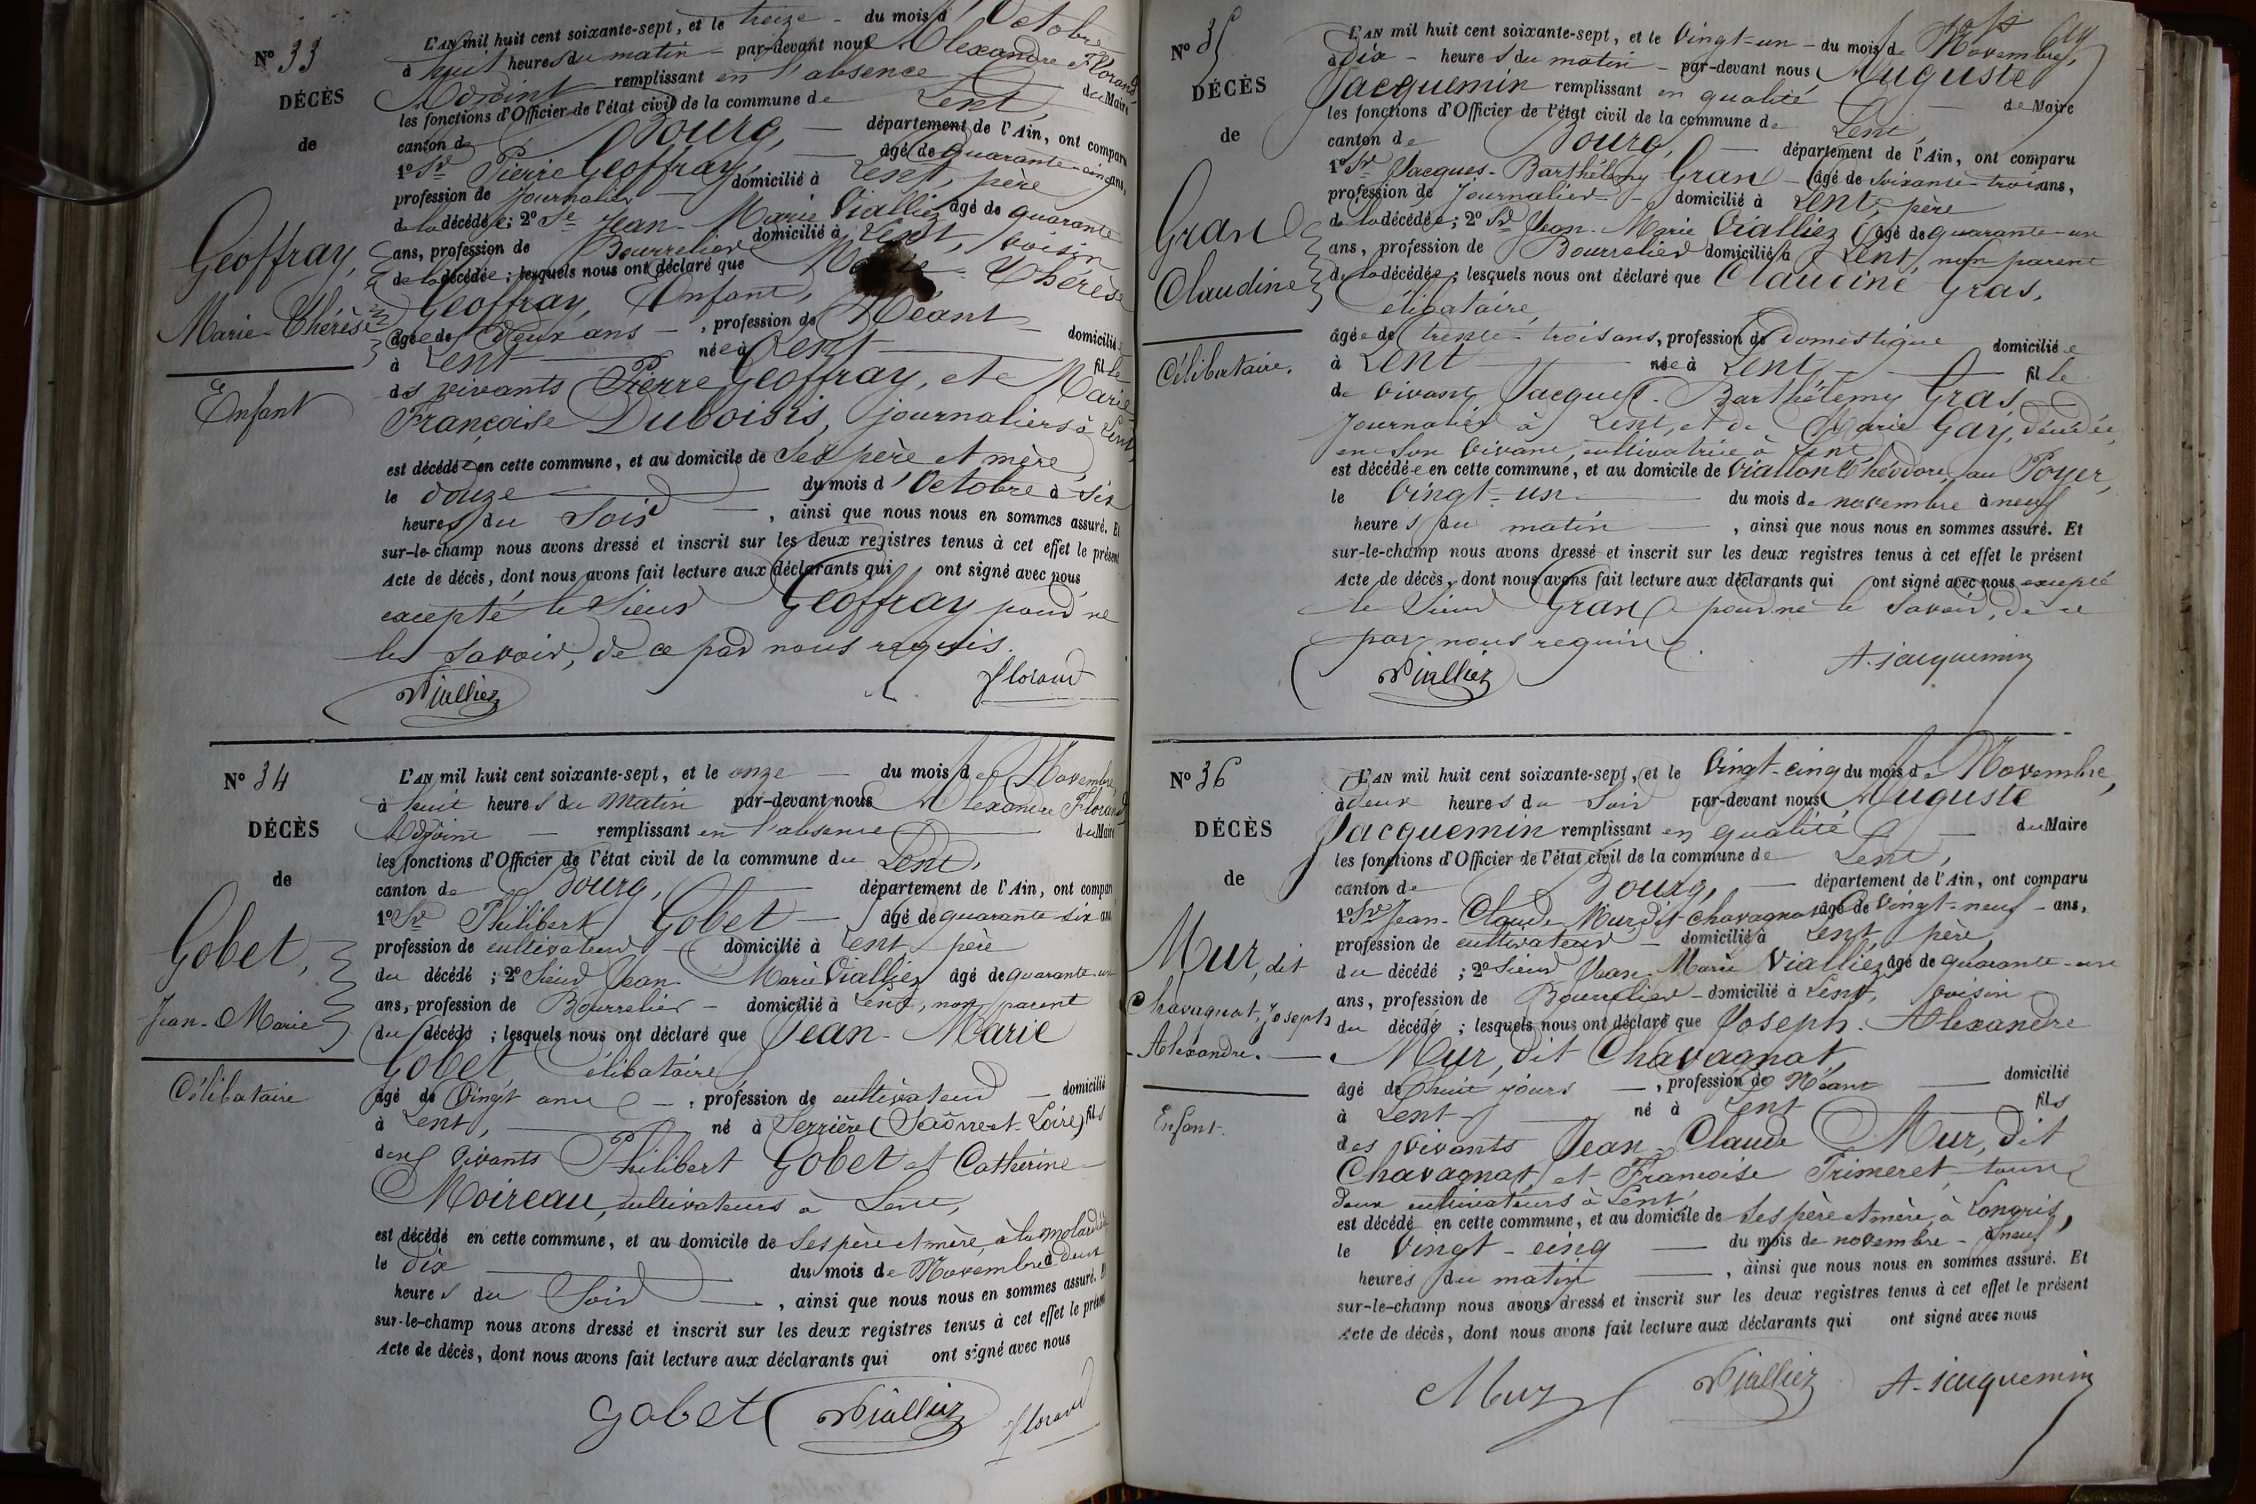 N° 33
DÉCÈS
de
Geoffray,
Marie-Thérèse
Enfant
L'AN mil huit cent soixante-sept, et le treize du mois d'Octobre
à huit heures du matin par-devant nous Alexandre Florand
Adjoint remplissant en l'absence du Maire
les fonctions d'Officier de l'état civil de la commune de Lent,
canton de Bourg, département de l'Ain, ont comparu
1° Sr Pierre Geoffray, âgé de quarante-cinq ans,
profession de Journalier domicilié à Lent, père
de la décédée; 2° Sr Jean-Marie Vialliez âgé de quarante
ans, profession de Bourrelier domicilié à Lent, voisin
de la décédée; lesquels nous ont déclaré que Marie-Thérèse
Geoffray, Enfant,
âgée de deux ans, profession de Néant domiciliée
à Lent née à Lent fille
des vivants Pierre Geoffray, et Marie
Françoise Duboisis, journaliers à Lent,
est décédée en cette commune, et au domicile de Ses père et mère,
le douze du mois d'Octobre à six
heures du soir, ainsi que nous nous en sommes assuré. Et
sur-le-champ nous avons dressé et inscrit sur les deux registres tenus à cet effet le présent
Acte de décès, dont nous avons fait lecture aux déclarants qui ont signé avec nous
excepté le Sieur Geoffray pour ne
les savoir, de ce par nous requis.
Vialliez Florand
N° 34
DÉCÈS
de
Gobet,
Jean-Marie
Célibataire
L'AN mil huit cent soixante-sept, et le onze du mois de Novembre
à huit heures du matin par-devant nous Alexandre Florand
Adjoint remplissant en l'absence du Maire
les fonctions d'Officier de l'état civil de la commune de Lent,
canton de Bourg, département de l'Ain, ont comparu
1° Sr Philibert Gobet âgé de quarante-six ans
profession de cultivateur domicilié à Lent père
du décédé; 2° Sieur Jean Marie Vialliez âgé de quarante-un
ans, profession de Bourrelier domicilié à Lent, non parent
du décédé; lesquels nous ont déclaré que Jean-Marie
Gobet Célibataire
âgé de Vingt ans, profession de cultivateur domicilié
à Lent, né à Serrières (Saône-et-Loire) fils
des vivants Philibert Gobet et Catherine
Moireau, cultivateurs à Lent,
est décédé en cette commune, et au domicile de Ses père et mère, à la
le dix du mois de Novembre à deux
heures du Soir, ainsi que nous nous en sommes assuré. Et
sur-le-champ nous avons dressé et inscrit sur les deux registres tenus à cet effet le présent
Acte de décès, dont nous avons fait lecture aux déclarants qui ont signé avec nous
Gobet Vialliez Florand
N° 35
DÉCÈS
de
Gras
Claudine
Célibataire.
L'AN mil huit cent soixante-sept, et le Vingt-un du mois de Novembre,
à dix heures du matin par-devant nous Auguste
Jacquemin remplissant en qualité de Maire
les fonctions d'Officier de l'état civil de la commune de Lent,
canton de Bourg, département de l'Ain, ont comparu
1° Sr Jacques-Barthélemy Gras âgé de soixante-trois ans,
profession de Journalier domicilié à Lent, père
de la décédée; 2° Sr Jean-Marie Vialliez âgé de quarante-un
ans, profession de Bourrelier domicilié à Lent, non parent
de la décédée; lesquels nous ont déclaré que Claudine Gras,
Célibataire,
âgée de trente-trois ans, profession de Domestique domiciliée
à Lent née à Lent fille
de vivant Jacques-Barthélemy Gras
Journalier à Lent, et de Marie Gay, décédée,
en son vivant, cultivatrice à Lent
est décédée en cette commune, et au domicile de Viallon Théodore, au Poyer,
le Vingt-un du mois de novembre à neuf
heures du matin, ainsi que nous nous en sommes assuré. Et
sur-le-champ nous avons dressé et inscrit sur les deux registres tenus à cet effet le présent
Acte de décès, dont nous avons fait lecture aux déclarants qui ont signé avec nous excepté
le Sieur Gras pour ne le savoir, de ce
par nous requis.
Vialliez A. Jacquemin
N° 36
DÉCÈS
de
Mur, dit
Chavagnat, Joseph
Alexandre.
Enfant.
L'AN mil huit cent soixante-sept, et le Vingt-cinq du mois de Novembre,
à deux heures du Soir par-devant nous Auguste
Jacquemin remplissant en qualité du Maire
les fonctions d'Officier de l'état civil de la commune de Lent,
canton de Bourg, département de l'Ain, ont comparu
1° Sr Jean-Claude Mur, dit Chavagnat âgé de Vingt-neuf ans,
profession de cultivateur domicilié à Lent, père,
du décédé; 2° Sieur Jean-Marie Vialliez âgé de quarante-un
ans, profession de Bourrelier domicilié à Lent, voisin
du décédé; lesquels nous ont déclaré que Joseph-Alexandre
Mur, dit Chavagnat,
âgé de huit jours, profession de Néant domicilié
à Lent né à Lent fils
des vivants Jean-Claude Mur, dit
Chavagnat, et Françoise Trimeret, tous
deux cultivateurs à Lent,
est décédé en cette commune, et au domicile de Ses père et mère, à Longris,
le Vingt-cinq du mois de novembre à neuf
heures du matin, ainsi que nous nous en sommes assuré. Et
sur-le-champ nous avons dressé et inscrit sur les deux registres tenus à cet effet le présent
Acte de décès, dont nous avons fait lecture aux déclarants qui ont signé avec nous
Mur Vialliez A. Jacquemin